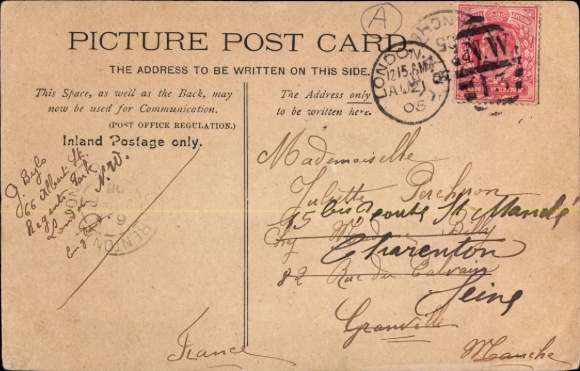 PICTURE POST CARD.
THE ADDRESS TO BE WRITTEN ON THIS SIDE.
This Space, as well as the Back, may
now be used for Communication.
(POST OFFICE REGULATION.)
Inland Postage only.
The Address only
to be written here.
A
LONDON. N.W
12.15 AM
05
N.W.
66 Albert St.
Regents Park
London N.W.
Mademoiselle
Juliette Percheron
45 bis route St Mandé
Charenton
82 Rue du Calvaire
Seine
Granville
Manche
France